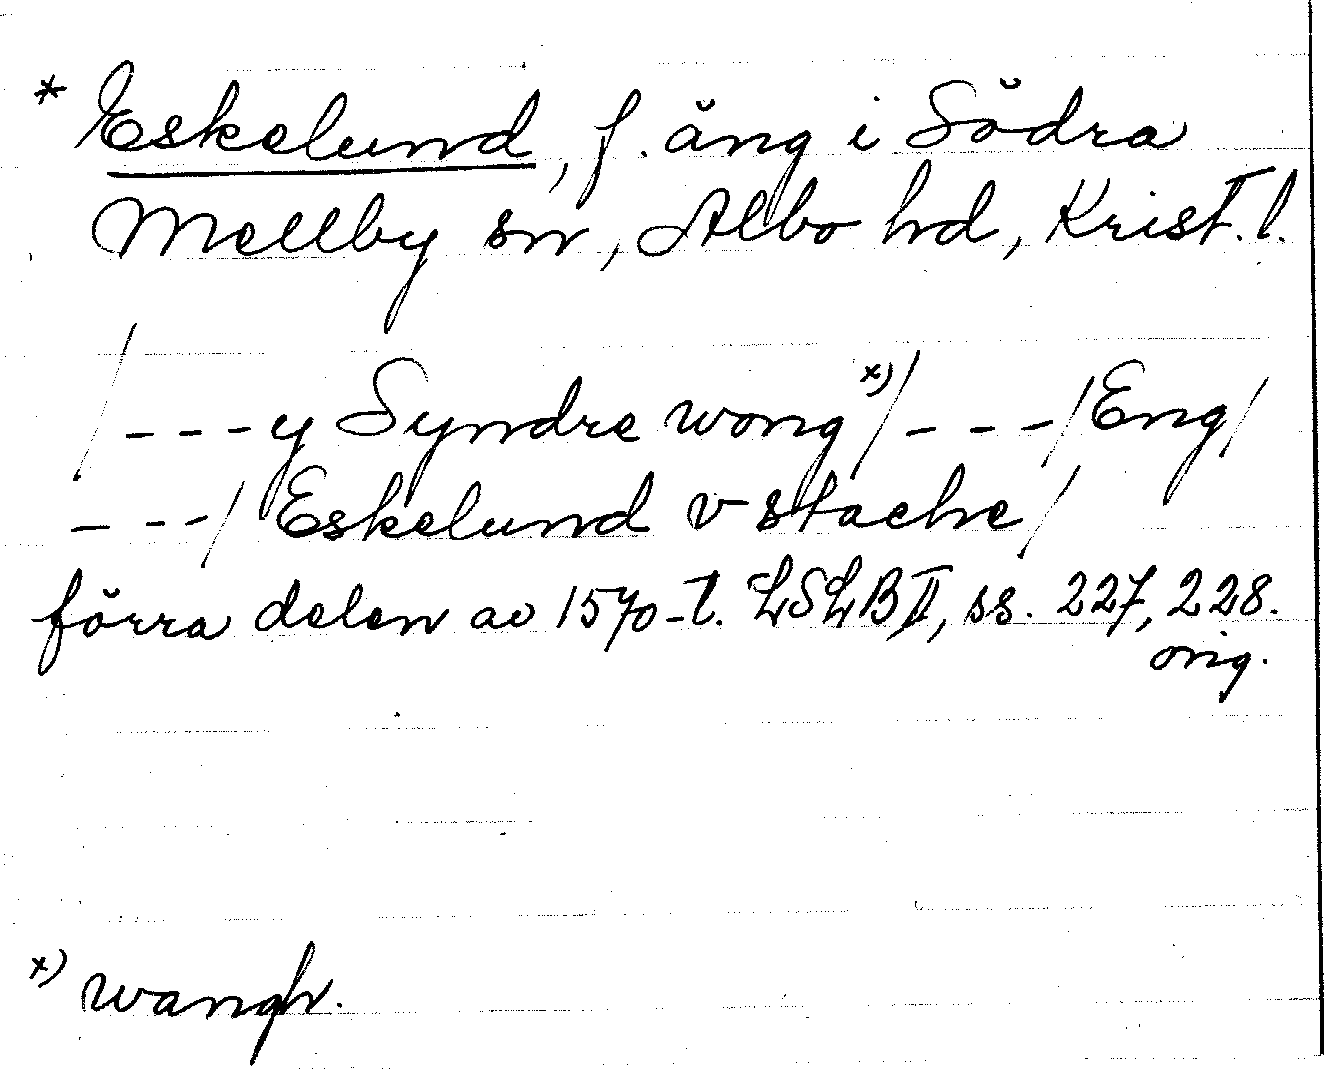 * Eskelund, f. äng i Södra
Mellby sn, Albo hd, Krist. l.
/---y Syndre wong x)/---/Eng/
---/Eskelund v stache/
förra delen av 1570-t. LSLB II, ss. 227, 228.
orig.
x) wangh.